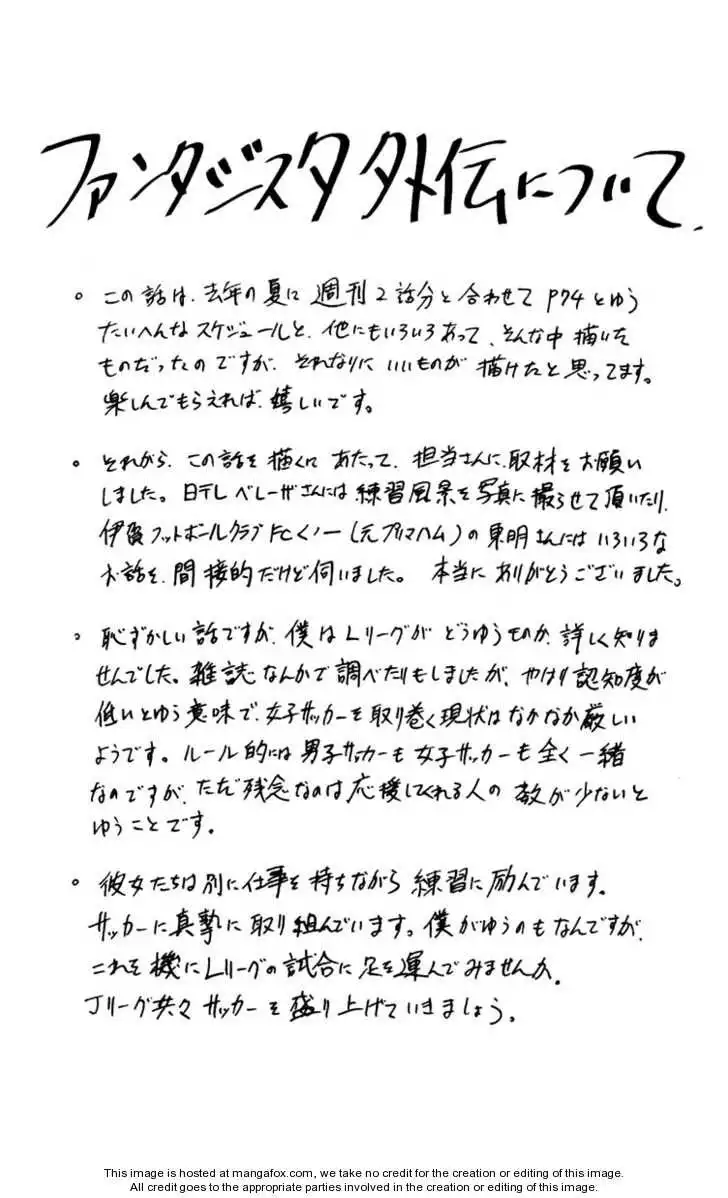 ファンタジスタ外伝について.
。この話は、去年の夏に週刊2話分と合わせてP74とゆう
たいへんなスケジュールと、他にもいろいろあって、そんな中描いた
ものだったのですが、それなりにいいものが描けたと思ってます。
楽しんでもらえれば、嬉しいです。
。それから、この話を描くにあたって、担当さんに、取材をお願い
しました。日テレベレーザさんには練習風景を写真に撮らせて頂いたり、
伊賀フットボールクラブFCくノ一(元プリマハム)の東明さんにはいろいろな
お話を、間接的だけど伺いました。本当にありがとうございました。
。恥ずかしい話ですが、僕はLリーグがどうゆうものか、詳しく知りま
せんでした。雑誌なんかで調べたりもしましたが、やはり認知度が
低いとゆう意味で、女子サッカーを取り巻く現状はなかなか厳しい
ようです。ルール的には男子サッカーも女子サッカーも全く一緒
なのですが、ただ残念なのは応援してくれる人の数が少ないと
ゆうことです。
。彼女たちは別に仕事を持ちながら練習に励んでいます。
サッカーに真摯に取り組んでいます。僕がゆうのもなんですが、
これを機にLリーグの試合に足を運んでみませんか。
Jリーグ共々サッカーを盛り上げていきましょう。
This image is hosted at mangafox.com, we take no credit for the creation or editing of this image.
All credit goes to the appropriate parties involved in the creation or editing of this image.